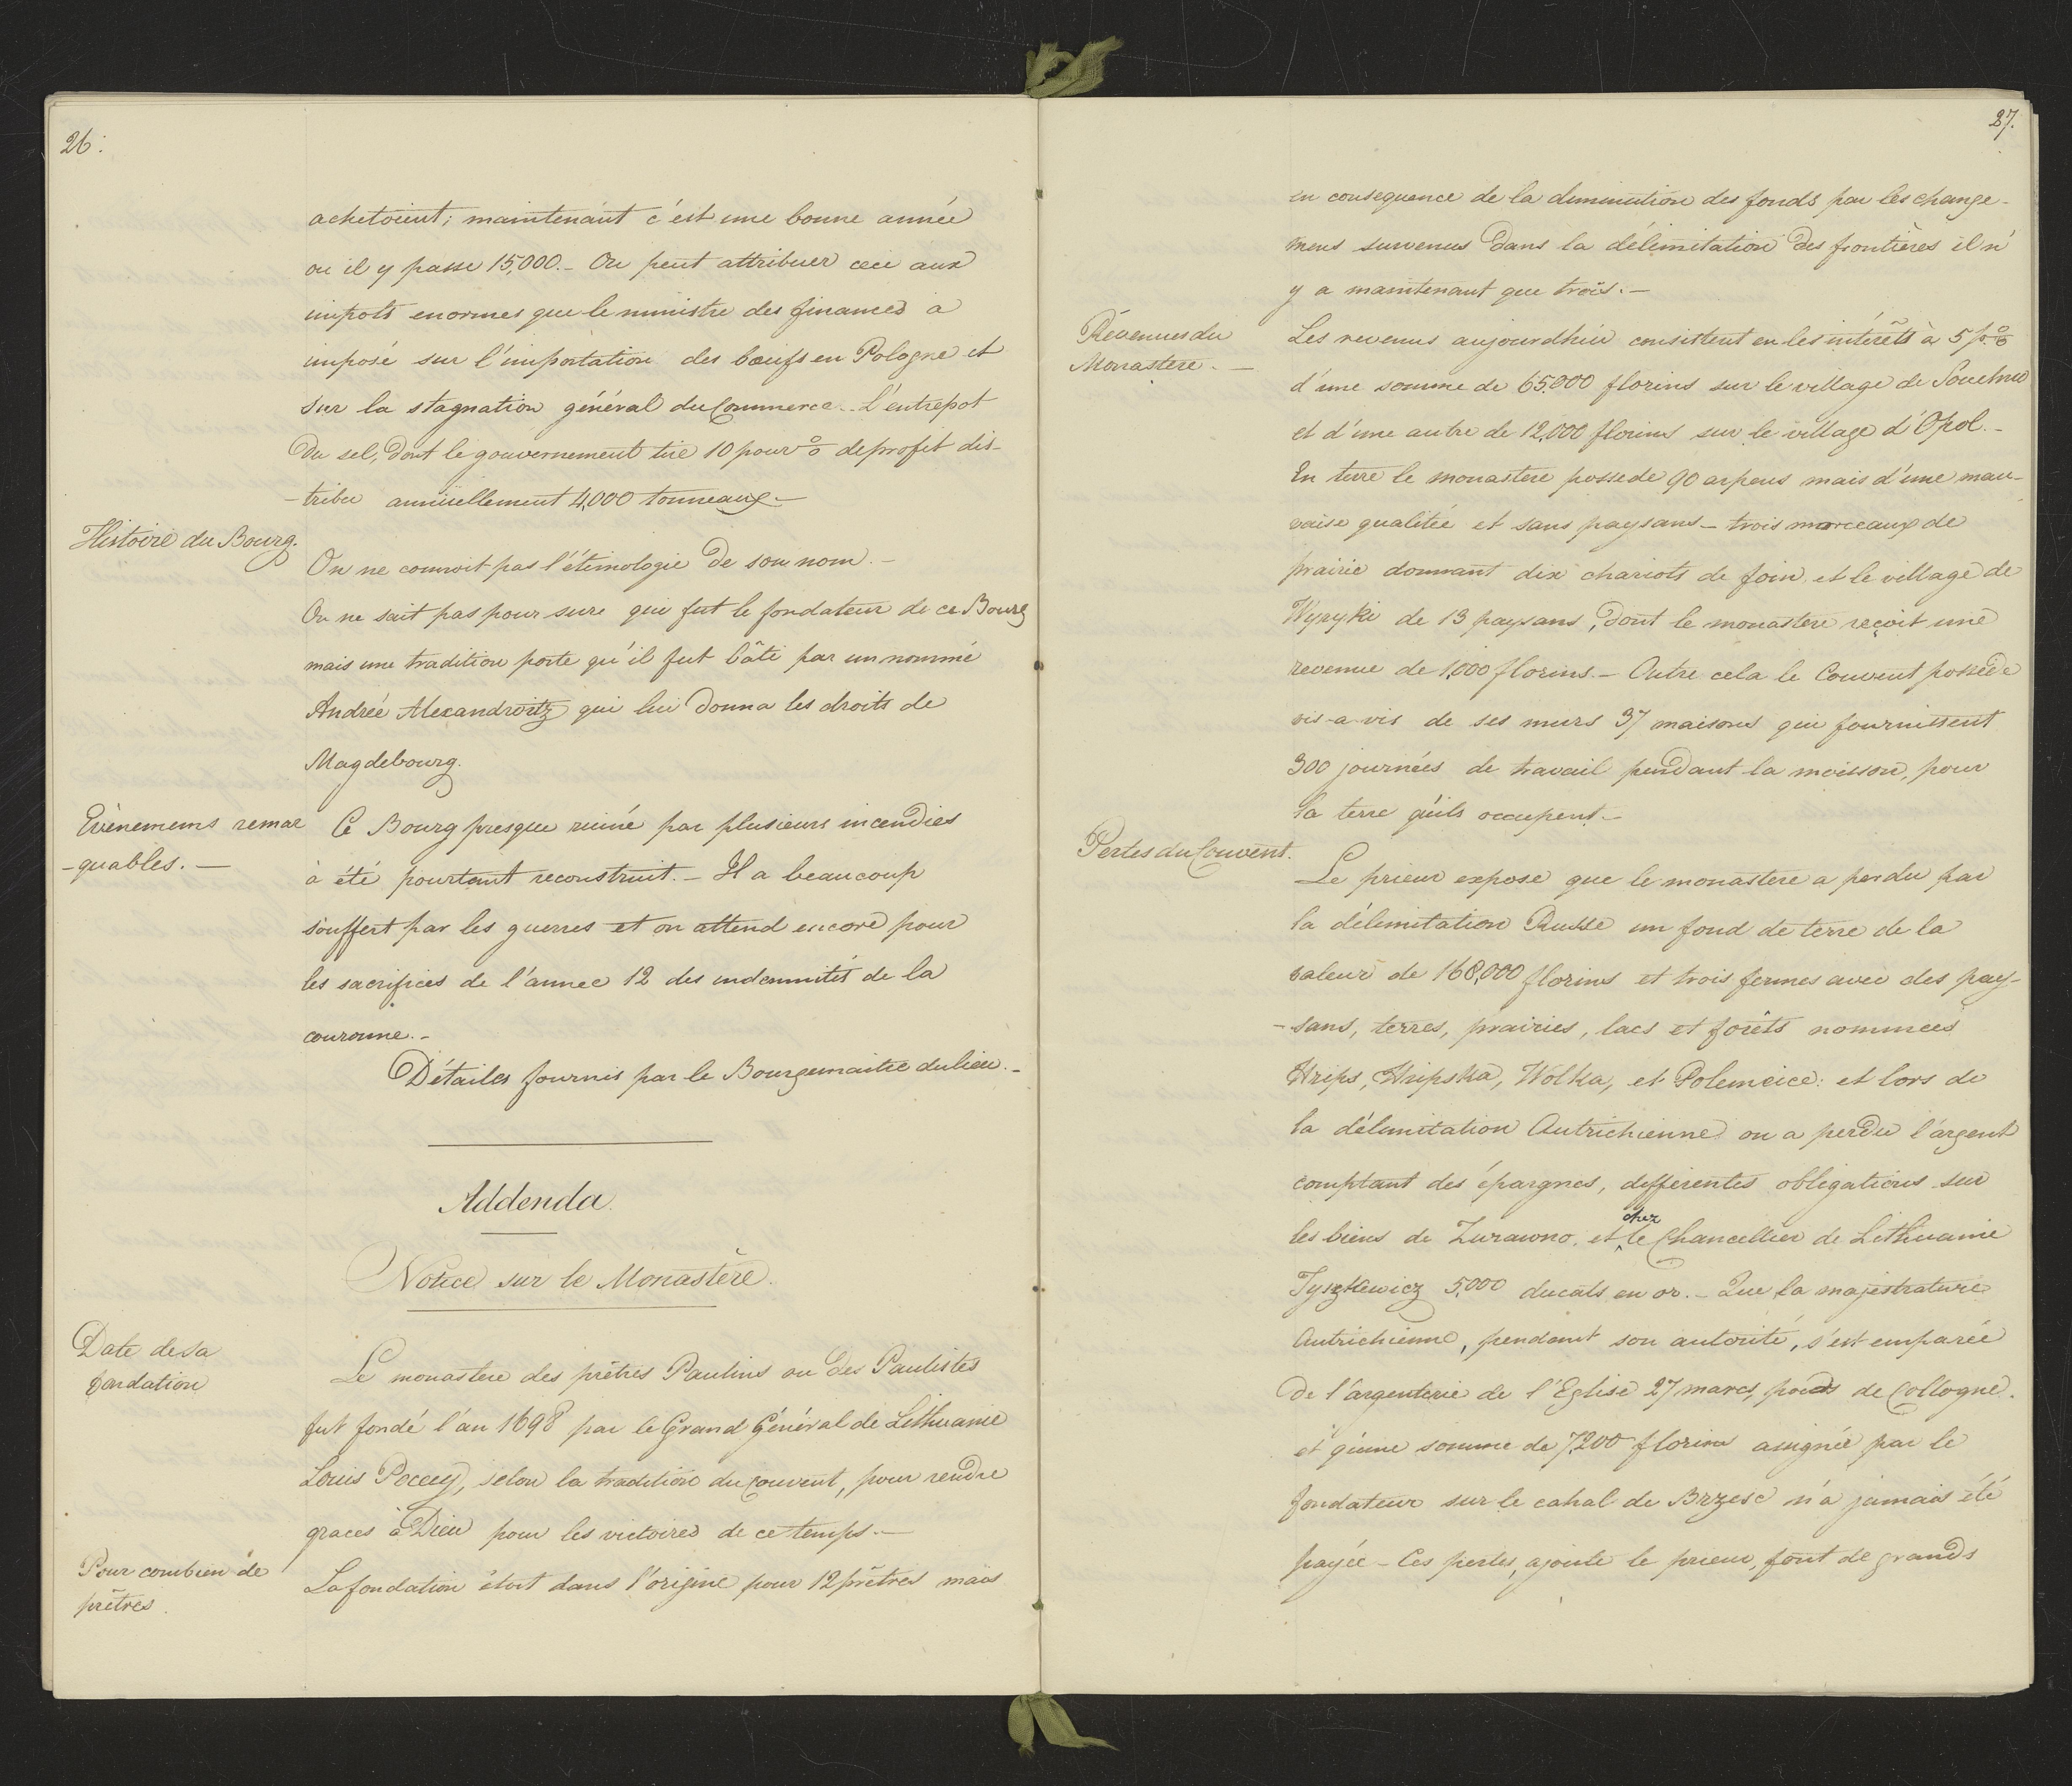 26.
achetoient; maintenant c'est une bonne année
ou il y passe 15,000.- On peut attribuer cece aux
impots enormes que le ministre des finances a
imposé sur l'importation des bœufs en Pologne et
sur la stagnation général du Commerce.- L'entrepot
du sel, dont le gouvernement tire 10 pour % de profit dis-
-tribu annuellement 4,000 tonneaux.-
Histoire du Bourg.
On ne connoit pas l'étimologie de son nom.-
On ne sait pas pour sure qui fut le fondateur de ce Bourg
mais une tradition porte qu'il fut bâti par un nommé
Andreé Alexandrovitz qui lui donna les droits de
Magdebourg.
Evènemens remar
-quables.-
Ce Bourg presque ruiné par plusieurs incendies
à été pourtant reconstruit.- Il a beaucoup
souffert par les guerres et on attend encore pour
les sacrifices de l'annee 12 des indemnités de la
couronne.-
Détailes fournis par le Bourgemaitre du lieu.-
Addenda.
Notice sur le Monastère.
Date de sa
fondation
Le monastere des prêtres Paulins ou des Paulistes
fut fondé l'an 1698 par le Grand Général de Lithuanie
Louis Pociey, selon la tradition du Couvent, pour rendre
graces à Dieu pour les victoires de ce temps.-
Pour combien de
prêtres.
La fondation étoit dans l'origine pour 12 prêtres mais
27.
en consequence de la diminution des fonds par les change-
mens survenus dans la délimitation des frontières il n'
y a maintenant que trois.-
Révenues du
Monastere.-
Les revenus aujourdhui consistent en les intérêts à 5 p. %
d'une somme de 65.000 florins sur le village de
et d'une autre de 12,000 florins sur le village d'Opol.-
En terre le monastere possede 90 arpens mais d'une mau-
vaise qualitée et sans paysans - trois morceaux de
prairie donnant dix chariots de foin, et le village de
Wyryki de 13 paysans, dont le monastere reçoit une
revenue de 1,000 florins.- Outre cela le Couvent possede
vis-a-vis de ses murs 37 maisons qui fournissent
300 journées de travail pendant la moisson, pour
la terre qu'ils occupent.-
Pertes du Couvent.
Le prieur expose que le monastere a perdu par
la délimitation Russe un fond de terre de la
valeur de 168,000 florins et trois fermes avec des pay-
-sans, terres, prairies, lacs et forêts nommées
Hrips, Hripska, Wolka, et Polemcice: et lors de
la délimitation Autrichienne on a perdu l'argent
comptant des épargnes, differentes obligations sur
les biens de Zurawno, et chez le Chancellier de Lithuanie
Tyszkiewicz 5,000 ducats en or.- Que la majestrature
Autrichienne, pendant son autorité, s'est emparée
de l'argenterie de l'Eglise 27 marcs, poids de Collogne.
et qu'une somme de 7,200 florins assignée par le
fondateur sur le cahal de Brzesc n'a jamais été
payée - Ces pertes, ajoute le prieur, font de grands